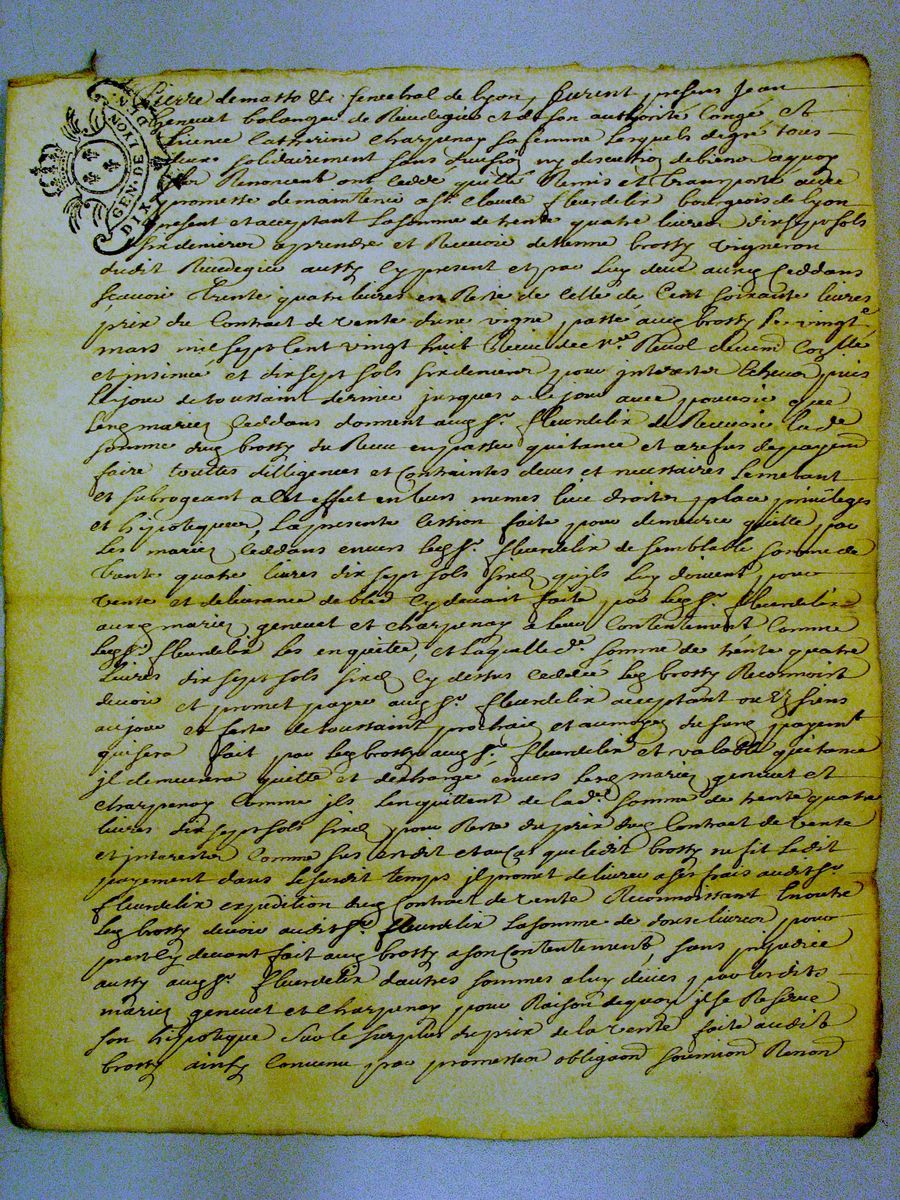 GEN. DE LYON
DIX D
Pierre de masso &c senechal de Lyon, furent presens Jean
genevet bolanger de Rivedegier et de son authorité Congé, et
Licence Catherine Charpenay sa femme Lesquels de gré tous
deux solidairement sans division ny discution de biens a quoy
Renoncent ont ceddé quitté Remis et transporté avec
promesse de maintenir a sr. Claude fleurdelix bourgeois de Lyon
present et acceptant La somme de trente quatre livres dix sept sols
six deniers a prendre et Recevoir detienne brossy vigneron
dudit Rivedegier aussy cy present et par luy deue auxd ceddans
scavoir trente quatre livres en Reste de celle de Cent soixante livres
prix du Contract de vente dune vigne passé aud brossy Le vingt
mars mil sept cent vingt huit Receu Revol
et insinué et dix sept sols six deniers pour interests depuis
Le jour de toussaint dernier jusques a ce jour avec pouvoir que
lesd mariez Ceddans donnent aud sr. fleurdelix de Recevoir lade
somme dud brossy du Receu en passer quitance et a refus de payemt
faire touttes dilligences et Contraintes deues et necessaires Le mettant
et subrogeant a cet effect en leurs memes lieu droits place privileges
et hipoteques, La presente Cession faite pour demeurer quitte par
Les mariez Ceddans envers led sr. fleurdelix de semblable somme de
trente quatre livres dix sept sols six d quils luy doivent pour
vente et delivrance de bled cy devant faite par led sr. fleurdelix
auxd mariez genevet et charpenay a leur Contentement Comme
led sr. fleurdelix les en quitte, et laquelle de. somme de trente quatre
Livres dix sept sols six d cy dessus ceddée led brossy Reconnoit
devoir et promet payer aud sr. fleurdelix acceptant ou ez siens
au jour et feste de toussaint prochain et au moyen dud payemt
qui sera fait par led brossy aud sr. fleurdelix et valable quitance
il demeurera quitte et dechargé envers lesd mariez genevet et
charpenay Comme ils len quittent de lade. somme de trente quatre
livres dix sept sols six d pour Reste du prix dud Contract de vente
et interests Comme sus est dit et au cas que ledit brossy ne fit ledit
payement dans le susdit temps il promet de livrer a ses frais audit sr.
fleurdelix expedition dud Contract de vente Reconnoissant en outre
led brossy devoir audit sr. fleurdelix La somme de douze livres pour
prest cy devant fait aud brossy a son Contentement, sans prejudice
aussy aud sr. fleurdelix dautres sommes a luy deues par lesdits
mariez genevet et charpenay pour Raison de quoy il se Reserve
son hipoteque sur le surplus du prix de la vente faite audit
brossy ainsy Convenu par promesses obligaons soumions Renons